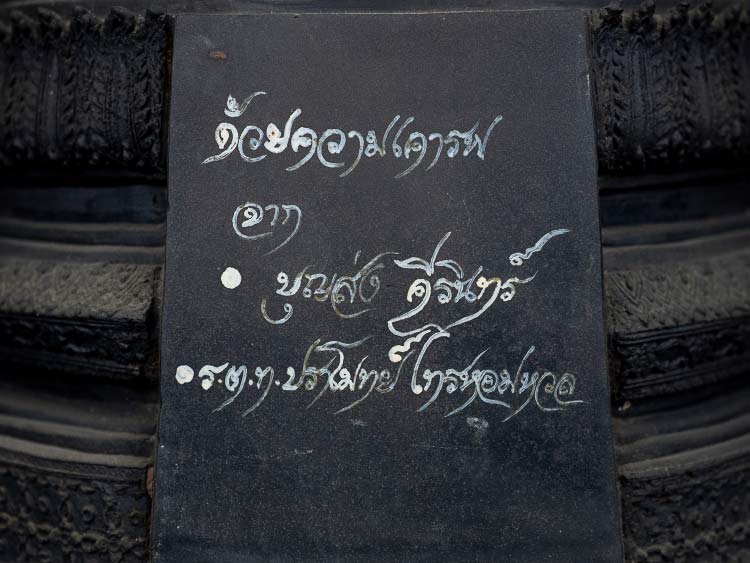 ด้วยความเคารพ
จาก
• บุญส่ง คีรินทร์
• ร.ต.ท. ปราโมทย์ ไทรหอมหวล